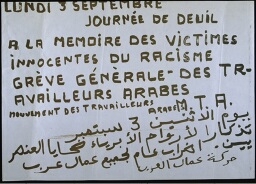 LUNDI 3 SEPTEMBRE
JOURNÉE DE DEUIL
A LA MEMOIRE DES VICTIMES
INNOCENTES DU RACISME
GRÈVE GÉNÉRALE - DES TR-
AVAILLEURS ARABES
MOUVEMENT DES TRAVAILLEURS ARABES M.T.A.
يوم الاثنين 3 سبتمبر
تذكارا لأرواح الأبرياء ضحايا العنصر
يين - اضراب عام لجميع عمال عرب
حركة عمال العرب